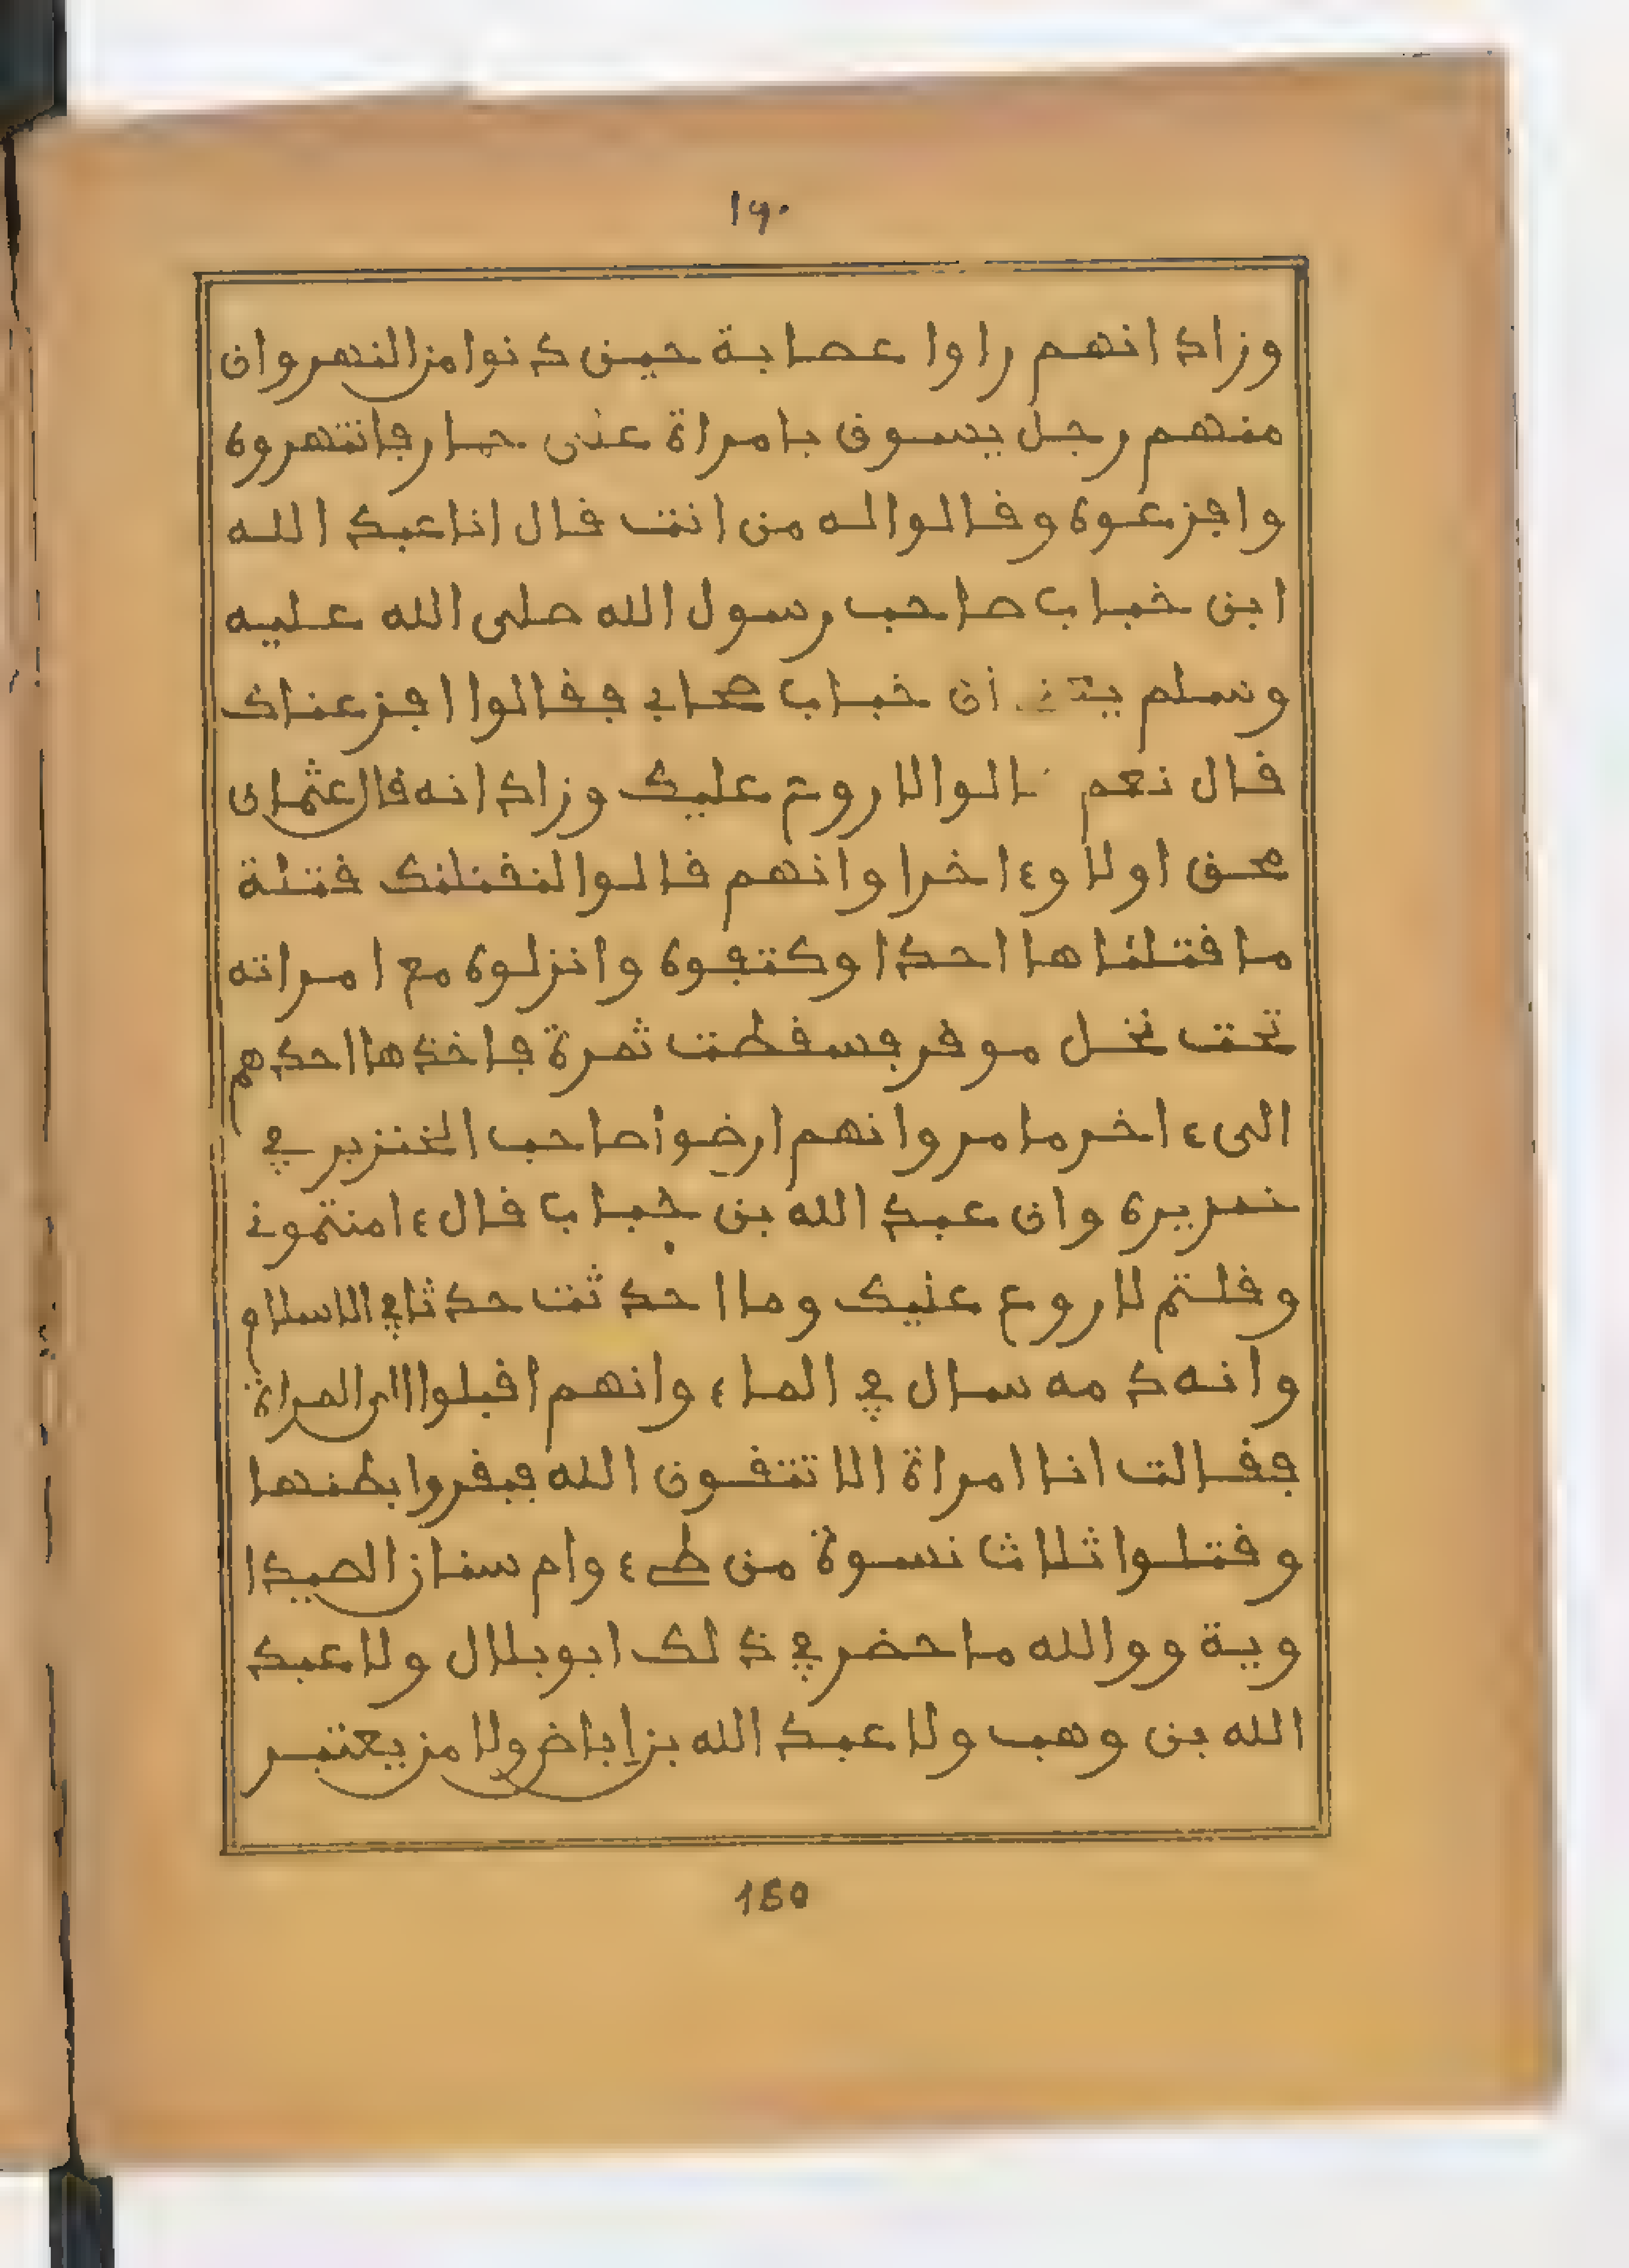 ١٩٠
وزاد انهم راوا عصابة حين دنوا من النهروان
منهم رجل يسوق بامراة على حمار فانتهروه
وافزعوه وقالوا له من انت قال انا عبد الله
ابن خباب صاحب رسول الله صلى الله عليه
وسلم ان خباب صحابي فقالوا افزعناك
قال نعم قالوا لا روع عليك وزاد انه قال عثمان
محق اولا وءاخرا وانهم قالوا لنقتلنك قتلة
ما قتلناها احدا وكتفوه وانزلوه مع امراته
تحت نخل موقر فسقطت ثمرة فاخذها احدهم
الى ءاخر ما مر وانهم ارضوا صاحب الخنزير في
خنزيره وان عبد الله بن خباب قال ءامنتموني
وقلتم لا روع عليك وما احدثت حدثا في الاسلام
وانه دمه سال في الماء وانهم اقبلوا الى المراة
فقالت انا امراة الا تتقون الله فبقروا بطنها
وقتلوا ثلاث نسوة من طيء وام سنان الصيدا
وية ووالله ما حضر في ذلك ابو بلال ولا عبد
الله بن وهب ولا عبد الله بن إباض ولا من يعتبر
150